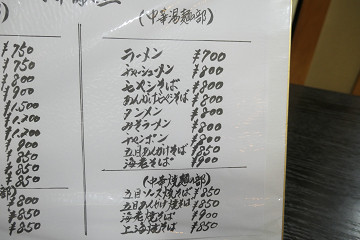 ¥750
¥750
¥800
¥900
¥800
¥850
¥850
(中華湯麺の部)
ラーメン ¥700
チャーシューメン ¥800
もやしそば ¥800
あんかけもやしそば ¥800
タンメン ¥800
みそラーメン ¥800
チャンポン ¥800
五目あんかけそば ¥850
海老そば ¥900
(中華焼麺の部)
五目ソース焼そば ¥850
五目あんかけ焼そば ¥850
海老焼そば ¥900
上海焼そば ¥850